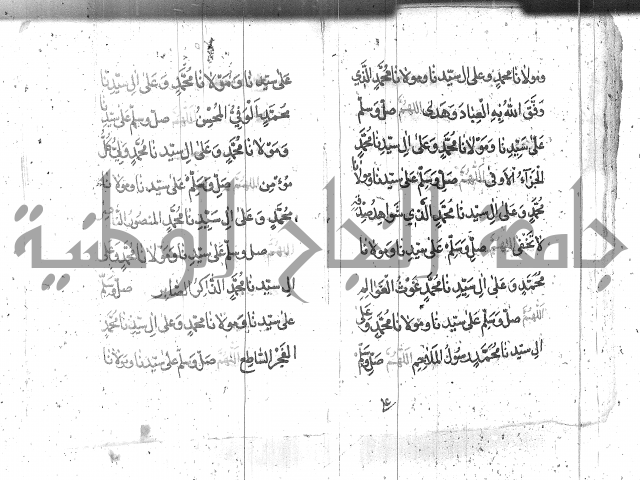 ومولانا محمد وعلى ال سيدنا ومولانا محمد الذي
وفق الله به العباد وهدى اللهم صل وسلم
على سيدنا ومولانا محمد وعلى ال سيدنا محمد
الجزاء الاوفى اللهم صل وسلم على سيدنا ومولانا
محمد وعلى ال سيدنا محمد الذي شواهد صدقه
لا تخفى اللهم صل وسلم على سيدنا ومولانا
محمد وعلى ال سيدنا محمد غوث العوالم
اللهم صل وسلم على سيدنا ومولانا محمد وعلى
ال سيدنا محمد رسول الملاحم اللهم صل وسلم
على سيدنا ومولانا محمد وعلى ال سيدنا
محمد الوفي المحسن اللهم صل وسلم على سيدنا
ومولانا محمد وعلى ال سيدنا محمد ولي كل
مؤمن اللهم صل وسلم على سيدنا ومولانا
محمد وعلى ال سيدنا محمد المنصور
اللهم صل وسلم على سيدنا ومولانا محمد وعلى
ال سيدنا محمد الذاكر الصابر اللهم صل وسلم
على سيدنا ومولانا محمد وعلى ال سيدنا محمد
الفجر الساطع اللهم صل وسلم على سيدنا ومولانا
جامعة النجاح الوطنية